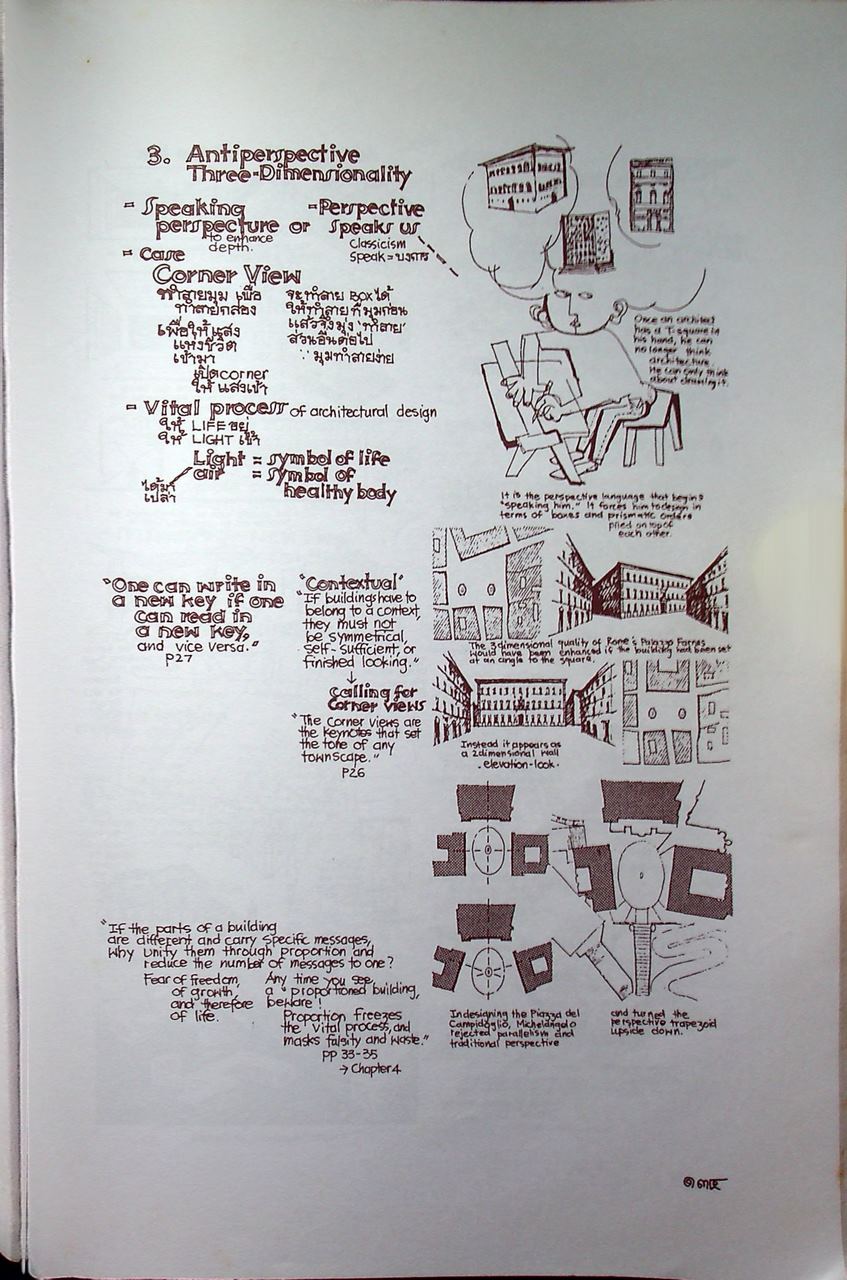 3. Antiperspective
Three-Dimensionality
- Speaking
perspecture or
to enhance
depth.
- Perspective
Speaks us
Classicism
Speak = บงการ
- Case
Corner View
ทำลายมุม เพื่อ
ทำลายกล่อง
เพื่อให้แสง
แห่งชีวิต
เข้ามา
เปิด corner
ให้ แสงเข้า
จะทำลาย BOX ได้
ให้ทำลาย ที่มุมก่อน
แล้วจึงมุ่ง 'ทำลาย'
ส่วนอื่นต่อไป
∵ มุมทำลายง่าย
- Vital process of architectural design
ให้ LIFE อยู่
ให้ LIGHT เข้า
Light = symbol of life
air = symbol of
healthy body
ได้มา
เปล่า
Once an architect
has a T-square in
his hand, he can
no longer think
architecture.
He can only think
about drawing it.
It is the perspective language that begins
"speaking him." It forces him to design in
terms of boxes and prismatic orders
piled on top of
each other.
"One can write in
a new key if one
can read in
a new key,
and vice versa."
P27
"Contextual"
"If buildings have to
belong to a context,
they must not
be symmetrical,
self-sufficient, or
finished looking."
↓
calling for
corner views
"The corner views are
the keynotes that set
the tone of any
townscape."
P26
The 3 dimensional quality of Rome's Palazzo Farnes
would have been enhanced if the building had been set
at an angle to the square.
Instead it appears as
a 2 dimensional wall
. elevation-look .
"If the parts of a building
are different and carry specific messages,
why unity them through proportion and
reduce the number of messages to one?
Fear of freedom,
of growth,
and therefore
of life.
Any time you see
a "proportioned building,
beware!
Proportion freezes
the vital process, and
masks falsity and waste."
PP 33-35
→ Chapter 4
In designing the Piazza del
Campidoglio, Michelangelo
rejected parallelism and
traditional perspective
and turned the
perspective trapezoid
upside down.